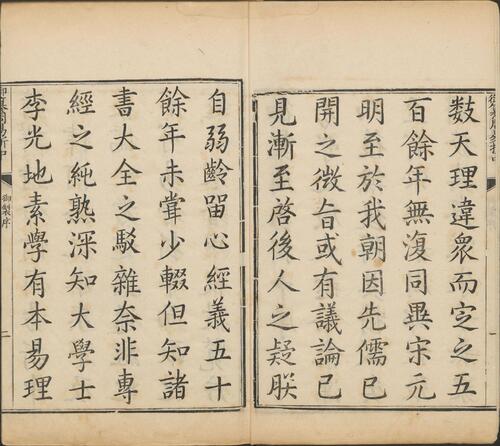 數天理違衆而定之五
百餘年無復同異宋元
明至於我朝因先儒已
開之微旨或有議論已
見漸至啓後人之疑朕
自弱齡留心經義五十
餘年未嘗少輟但知諸
書大全之駁雜奈非專
經之純熟深知大學士
李光地素學有本易理
御纂周易折中
御製序
二